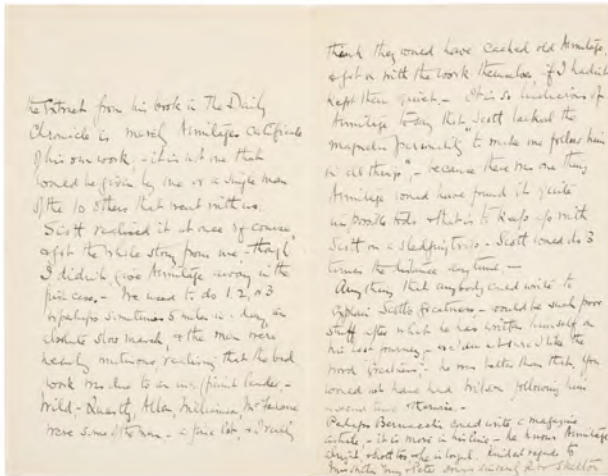 the extract from his book in The Daily
Chronicle is merely Armitage's certificate
of his own work, - it is not one that
would be given by me or a single man
of the 10 others that went with us.
Scott realised it at once of course,
& got the whole story from me - though
I didn't give Armitage away in the
first case. - We used to do 1, 2, or 3
or perhaps sometimes 5 miles in a day, an
absolute slow march, & the men were
nearly mutinous realising that the bad
work was due to an inefficient leader -
Wild - Quartly, Allan, Williamson, McFarlane
were some of the men - a fine lot, & I really
think they would have cached old Armitage,
& got on with the work themselves if I hadn't
kept them quiet. - It is so ludicrous of
Armitage to say that Scott lacked the
magnetic personality "to make me follow him
in all things", - because there was one thing
Armitage would have found it quite
impossible to do & that is to keep up with
Scott on a sledging trip. - Scott would do 3
times the distance any time -
Anything that anybody could write to
explain Scott's greatness - would be such poor
stuff after what he has written himself on
his last journey - 
word greatness: he was better than that, you
would not have had Wilson following him
otherwise. -
Perhaps Bernacchi could write a magazine
article, - it is more in his line - he knows Armitage
& he is loyal. Kindest regards to
Yours sincerely R. W. Skelton